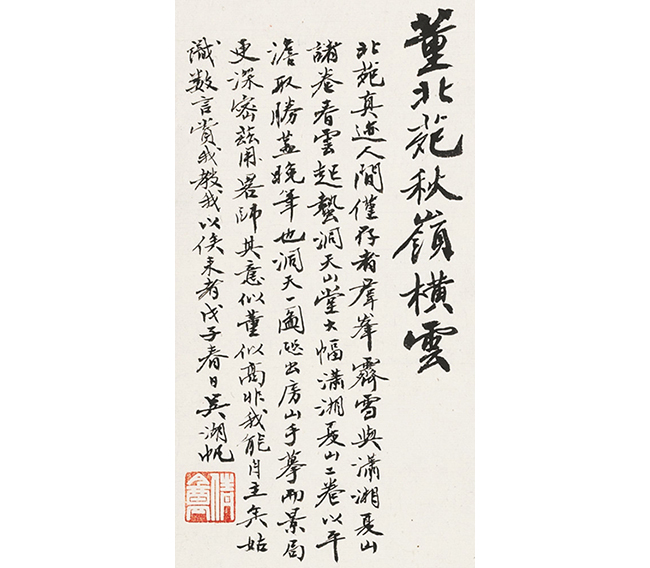 董北苑秋嶺橫雲
北苑真迹人間僅存者羣峯霽雪與瀟湘夏山
諸卷春雲起蟄洞天山堂大幅瀟湘夏山二卷以平
澹取勝蓋晚年也洞天一圖恐出房山手摹而景局
更深密茲用略師其意似董似高非我能自主矣姑
識數言賞我教我以俟來者戊子春日吳湖帆